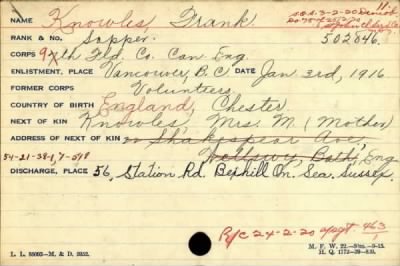 NAME Knowles, Frank. 11.
S.O.S. 3-2-20 Demob
RANK & NO. Sapper. 502846.
CORPS 9th Fld. Co. Can. Eng.
ENLISTMENT, PLACE Vancouver, B.C. DATE Jan 3rd, 1916
FORMER CORPS Volunteers.
COUNTRY OF BIRTH England, Chester
NEXT OF KIN Knowles, Mrs. M. (Mother)
ADDRESS OF NEXT OF KIN 20 Shakespear Ave,
54-21-38-1, 7-598 Wellsway, Bath, Eng
DISCHARGE, PLACE 56, Station Rd. Bexhill On. Sea. Sussex.
R/C 24-2-20 463/1
L. L. 88093—M. & D. 8352. M. F. W. 22.—50m.—9-15.
H. Q. 1772-39-839.